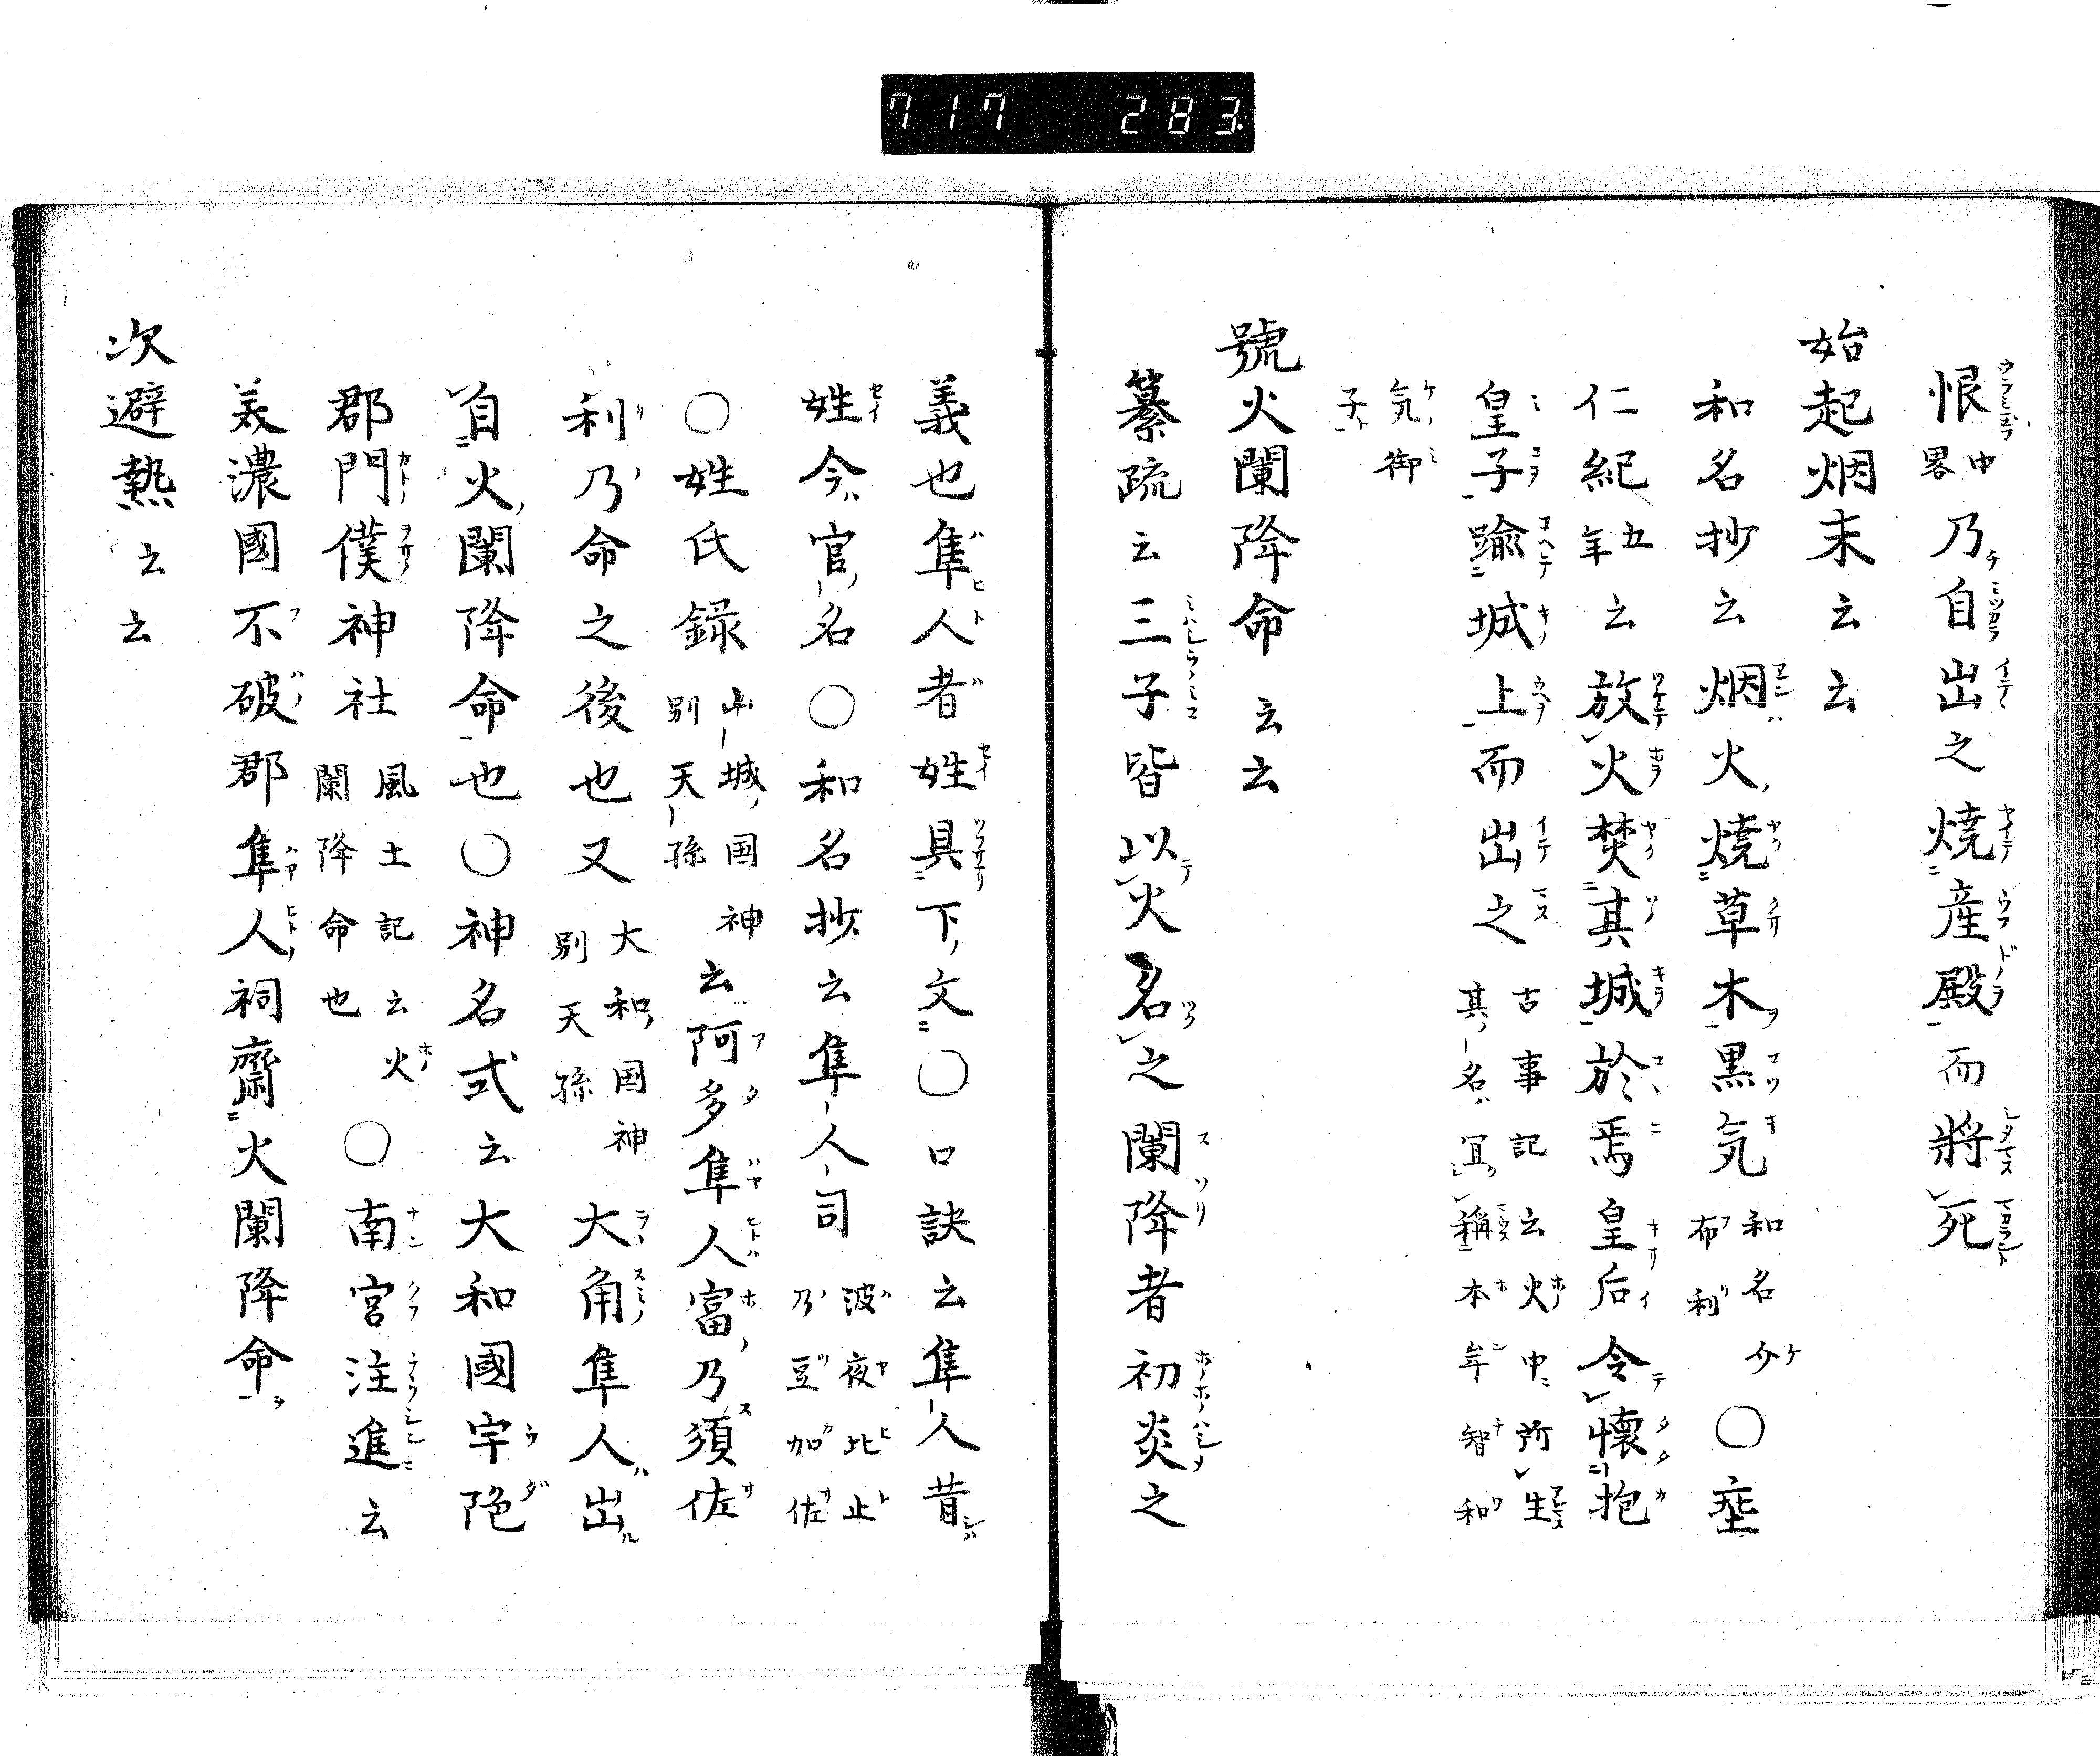 717 283
恨中畧乃自出之燒産殿而將死
始起烟末云云
和名抄云烟火燒草木黒気和名介布利〇垂
仁紀五年云放火焚其城於焉皇后令懷抱
皇子踰城上而出之古事記云火中所生其名冝稱本牟智和
気御子
號火闌降命云云
纂疏云三子皆以火名之闌降者初炎之
義也隼人者姓具下文〇口訣云隼人昔
姓今官名〇和名抄云隼人司波夜比止乃豆加佐
〇姓氏録山城国神別天孫云阿多隼人富乃須佐
利乃命之後也又大和国神別天孫大角隼人出
自火闌降命也〇神名式云大和國宇陁
郡門僕神社風土記云火闌降命也〇南宮注進云
美濃國不破郡隼人祠齋火闌降命
次避熱云云